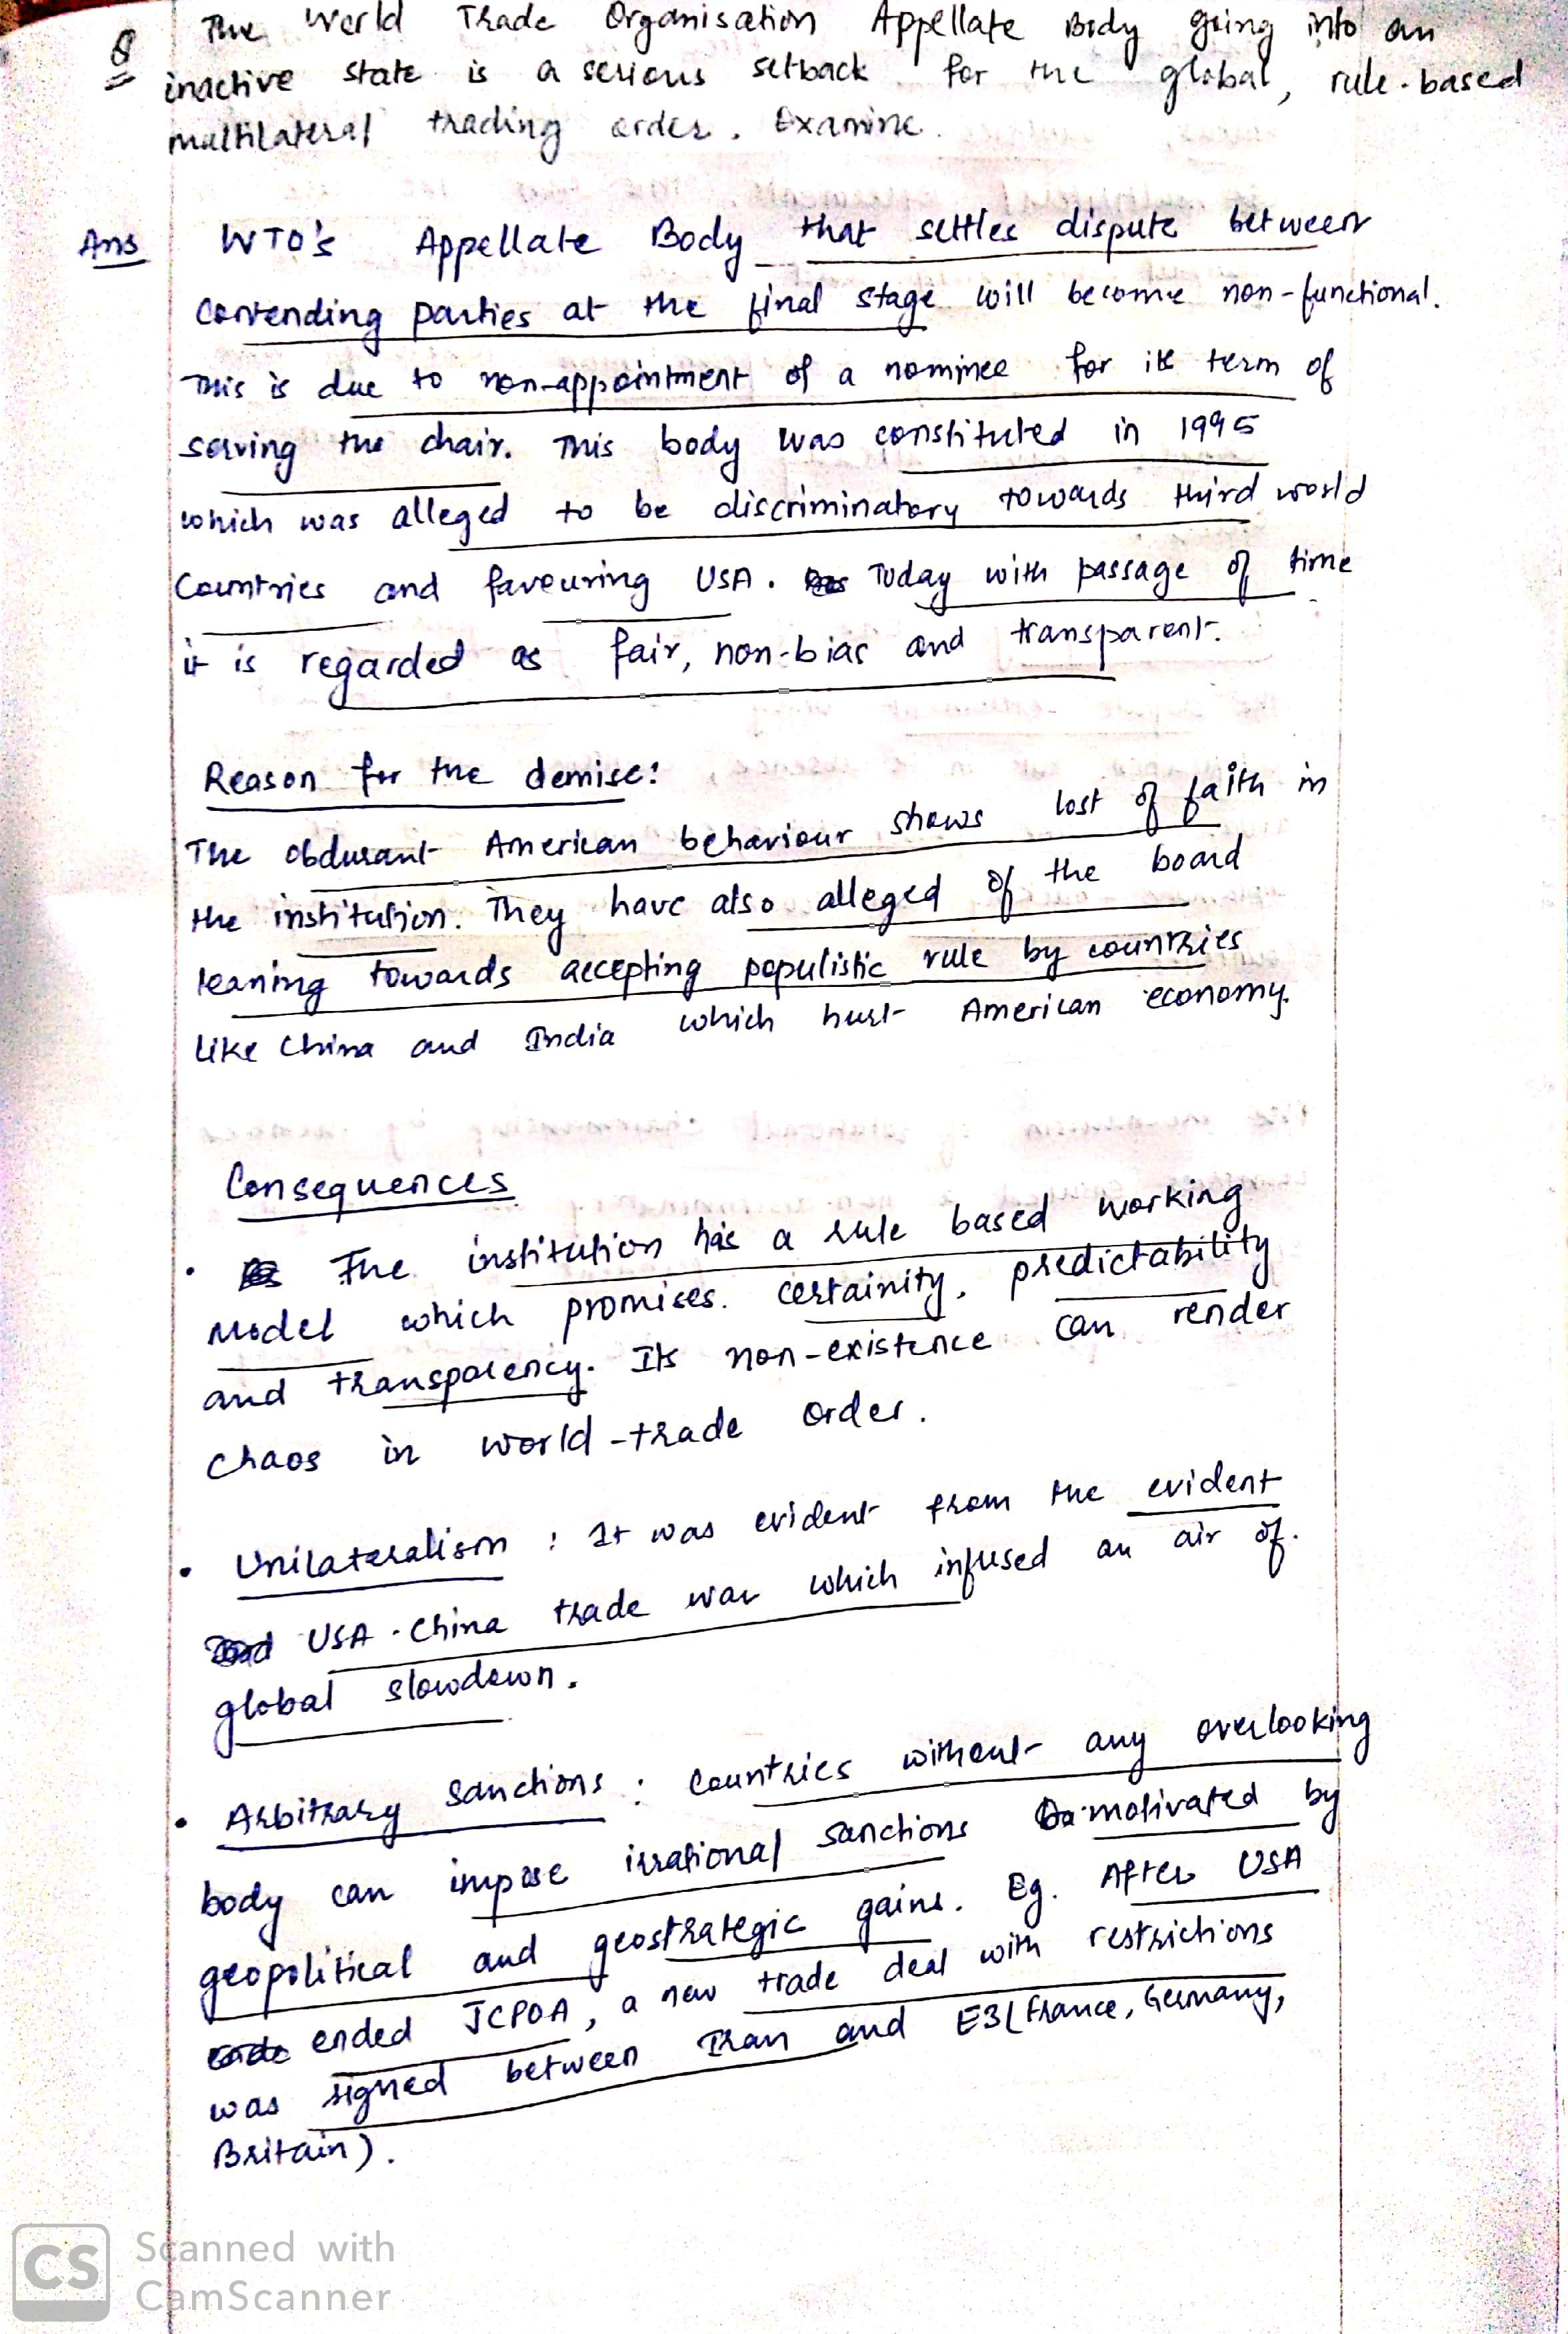 Q The World Trade Organisation Appellate Body going into an
inactive state is a serious setback for the global, rule-based
multilateral trading order. Examine.
Ans WTO's Appellate Body that settles dispute between
contending parties at the final stage will become non-functional.
This is due to non-appointment of a nominee for its term of
serving the chair. This body was constituted in 1995
which was alleged to be discriminatory towards third world
Countries and favouring USA. Today with passage of time
it is regarded as fair, non-bias and transparent.
Reason for the demise:
The obdurant American behaviour shows lost of faith in
the institution. They have also alleged of the board
leaning towards accepting populistic rule by countries
like China and India which hurt American economy.
Consequences
• The institution has a rule based working
Model which promises. certainity, predictability
and transparency. Its non-existence can render
chaos in world-trade order.
• Unilateralism : It was evident from the evident
USA-China trade war which infused an air of.
global slowdown.
• Arbitrary sanctions : Countries without any overlooking
body can impose irrational sanctions motivated by
geopolitical and geostrategic gains. Eg. After USA
ended JCPOA, a new trade deal with restrictions
was signed between Iran and E3(France, Germany,
Britain).
CS Scanned with
CamScanner